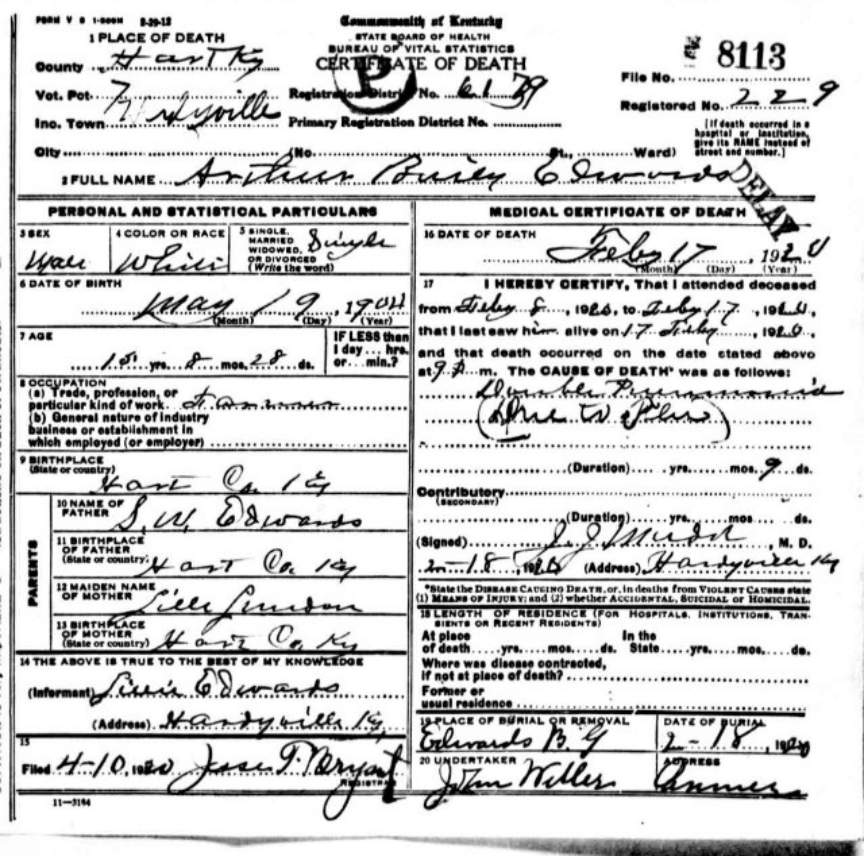 FORM V S 1-500M 8-29-12
Commonwealth of Kentucky
STATE BOARD OF HEALTH
BUREAU OF VITAL STATISTICS
CERTIFICATE OF DEATH
P
8113
File No.
Registered No. 229
[If death occurred in a hospital or institution, give its NAME instead of street and number.]
1 PLACE OF DEATH
County Hart Ky
Vot. Pct. Hardyville Registration District No. 6139
Inc. Town Primary Registration District No.
City (No. St., Ward)
2 FULL NAME Arthur Edwards
DELAY
PERSONAL AND STATISTICAL PARTICULARS
3 SEX Male
4 COLOR OR RACE White
5 SINGLE, MARRIED WIDOWED, OR DIVORCED (Write the word) Single
6 DATE OF BIRTH
May 19, 1904
(Month) (Day) (Year)
7 AGE
15 yrs. 8 mos. 28 ds.
IF LESS than 1 day ... hrs. or ... min.?
8 OCCUPATION
(a) Trade, profession, or
particular kind of work Farmer
(b) General nature of industry
business or establishment in
which employed (or employer)
9 BIRTHPLACE
(State or country) Hart Co. Ky
PARENTS
10 NAME OF FATHER S. W. Edwards
11 BIRTHPLACE OF FATHER (State or country) Hart Co. Ky
12 MAIDEN NAME OF MOTHER
13 BIRTHPLACE OF MOTHER (State or country) Hart Co. Ky
14 THE ABOVE IS TRUE TO THE BEST OF MY KNOWLEDGE
(Informant) Edwards
(Address) Hardyville Ky,
15
Filed 4-10, 1920 Jesse T. Bryant
REGISTRAR
11-3184
MEDICAL CERTIFICATE OF DEATH
16 DATE OF DEATH
Feby 17, 1920
(Month) (Day) (Year)
17 I HEREBY CERTIFY, That I attended deceased
from Feby 8, 1920, to Feby 17, 1920,
that I last saw him alive on 17 Feby, 1920,
and that death occurred on the date stated above
at 9 m. The CAUSE OF DEATH* was as follows:
Double Pneumonia
(Due to Flu)
(Duration) yrs. mos. 9 ds.
Contributory
(SECONDARY)
(Duration) yrs. mos. ds.
(Signed) J. J. , M. D.
2-18, 1920 (Address) Hardyville Ky
*State the DISEASE CAUSING DEATH, or, in deaths from VIOLENT CAUSES state
(1) MEANS OF INJURY; and (2) whether ACCIDENTAL, SUICIDAL or HOMICIDAL.
18 LENGTH OF RESIDENCE (FOR HOSPITALS, INSTITUTIONS, TRAN-
SIENTS OR RECENT RESIDENTS)
At place In the
of death yrs. mos. ds. State yrs. mos. ds.
Where was disease contracted,
if not at place of death?
Former or
usual residence
19 PLACE OF BURIAL OR REMOVAL
Edwards B. G
DATE OF BURIAL
2-18, 1920
20 UNDERTAKER
John
ADDRESS